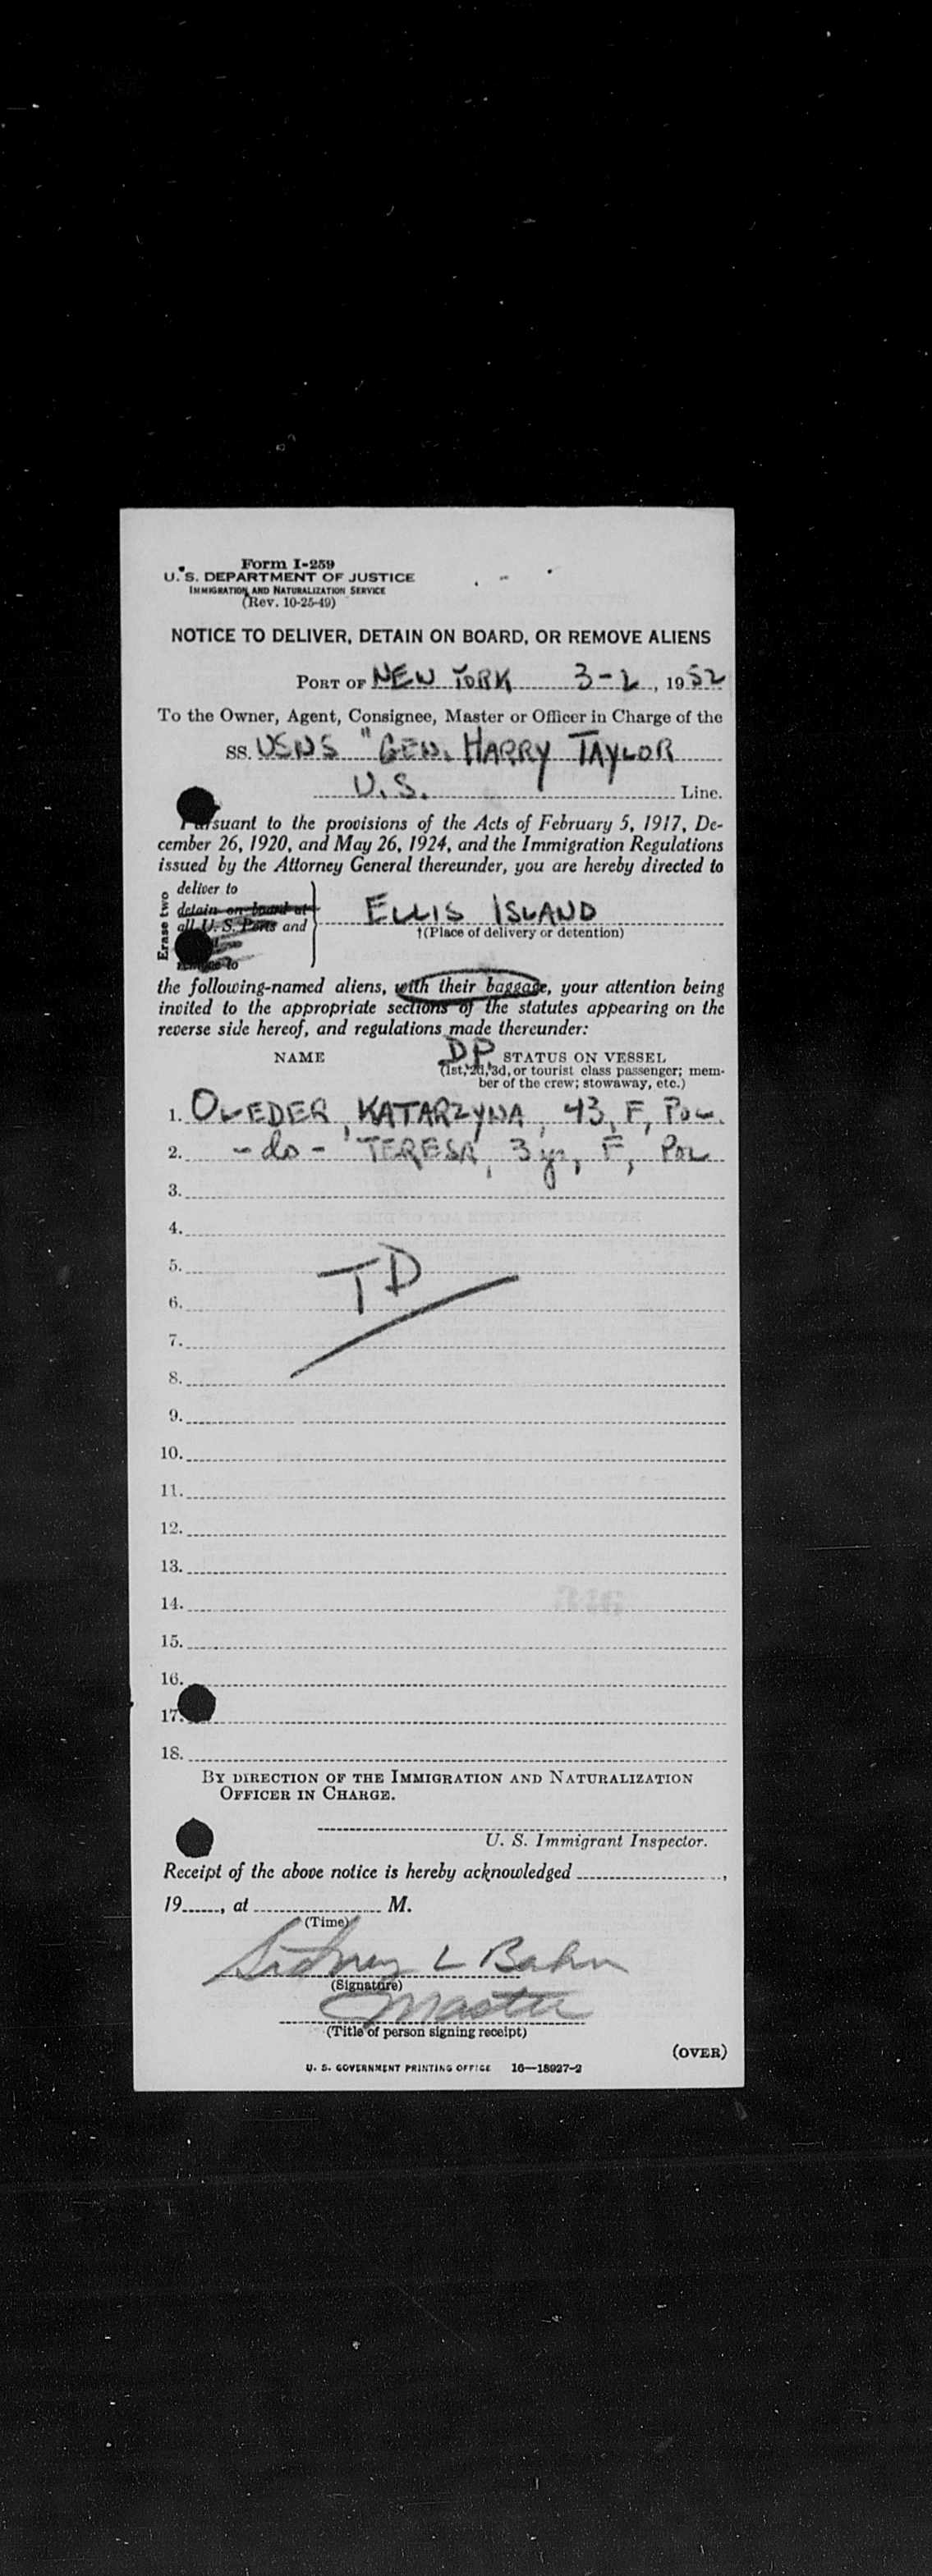 Form I-259
U. S. DEPARTMENT OF JUSTICE
IMMIGRATION AND NATURALIZATION SERVICE
(Rev. 10-25-49)
NOTICE TO DELIVER, DETAIN ON BOARD, OR REMOVE ALIENS
PORT OF NEW YORK 3-2, 1952
To the Owner, Agent, Consignee, Master or Officer in Charge of the
SS. USNS "GEN. HARRY TAYLOR
U.S. Line.
Pursuant to the provisions of the Acts of February 5, 1917, De-
cember 26, 1920, and May 26, 1924, and the Immigration Regulations
issued by the Attorney General thereunder, you are hereby directed to
Erase two
deliver to
detain on board at
all U. S. Ports and
remove to
ELLIS ISLAND
†(Place of delivery or detention)
the following-named aliens, with their baggage, your attention being
invited to the appropriate sections of the statutes appearing on the
reverse side hereof, and regulations made thereunder:
NAME DP STATUS ON VESSEL
(1st, 2d, 3d, or tourist class passenger; mem-
ber of the crew; stowaway, etc.)
1. OLEDER, KATARZYNA, 43, F, POL.
2. -do- TERESA, 3 yr, F, POL
3.
4.
5.
TD
6.
7.
8.
9.
10.
11.
12.
13.
14.
15.
16.
17.
18.
BY DIRECTION OF THE IMMIGRATION AND NATURALIZATION
OFFICER IN CHARGE.
U. S. Immigrant Inspector.
Receipt of the above notice is hereby acknowledged ,
19 , at M.
(Time)
Sidney L Bahn
(Signature)
Master
(Title of person signing receipt)
(OVER)
U. S. GOVERNMENT PRINTING OFFICE 16—18927-2